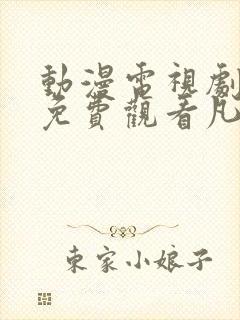 動漫電視劇
免費觀看凡
東家小娘子